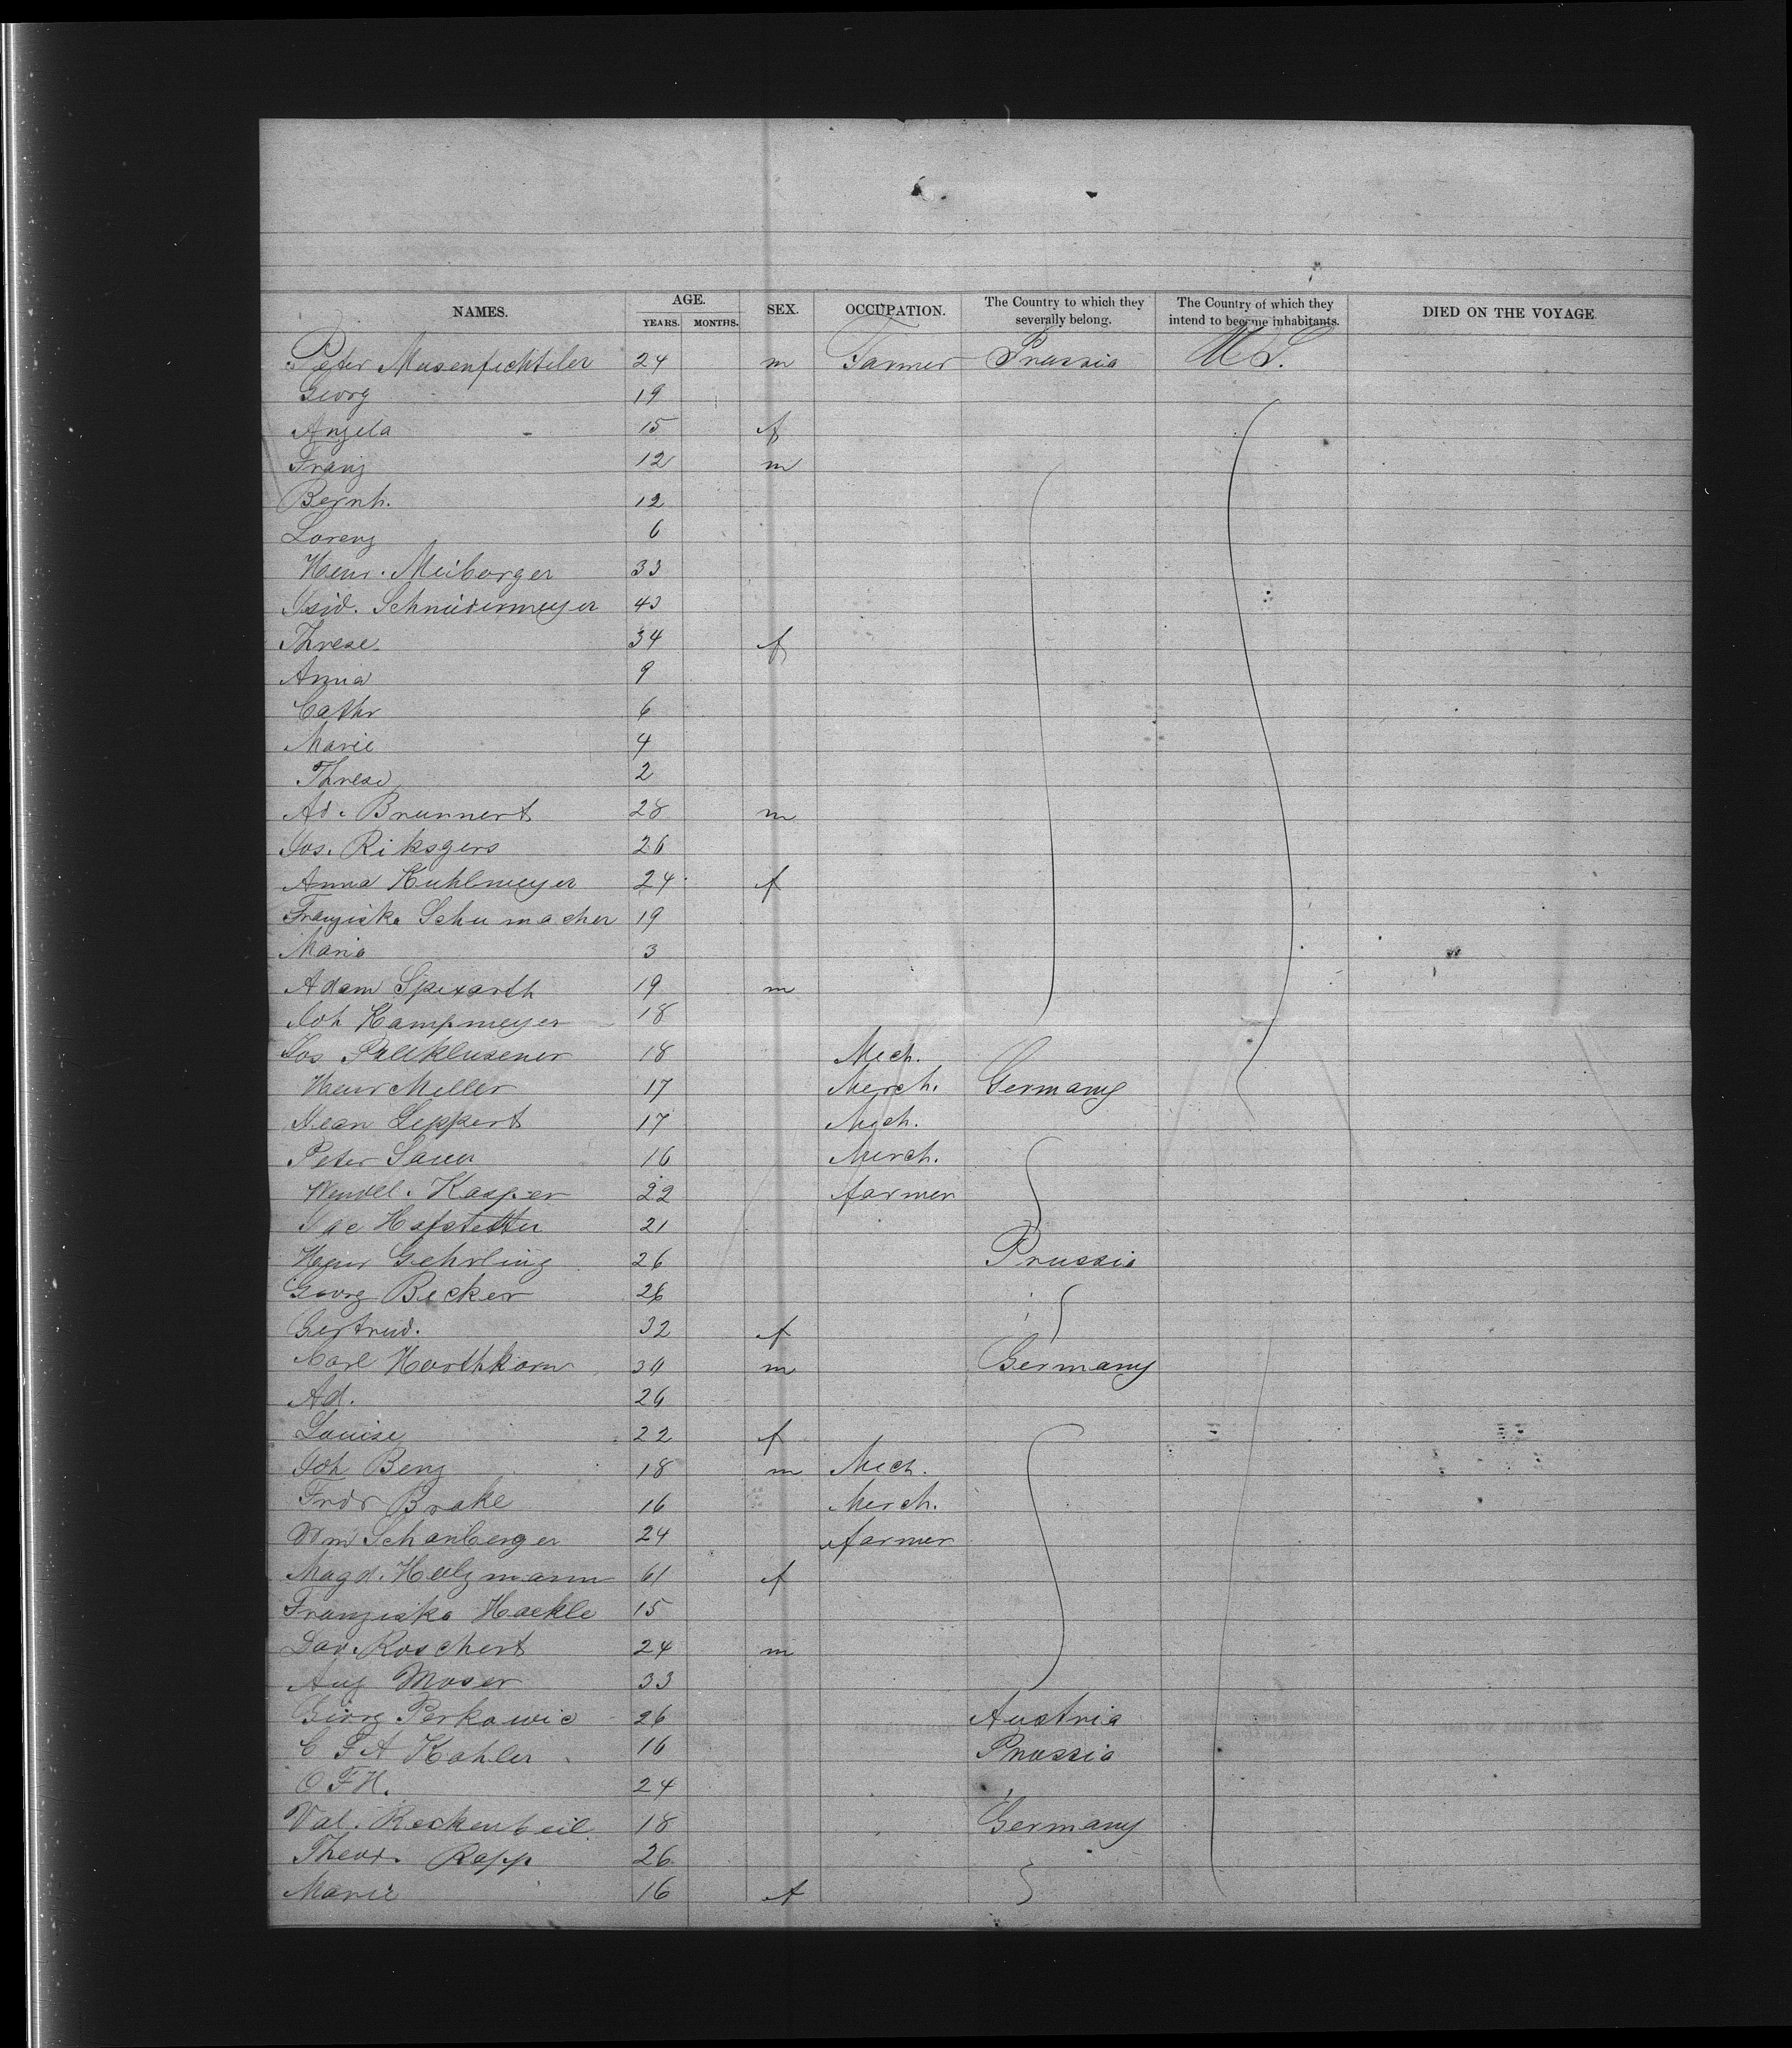 NAMES. AGE. YEARS. MONTHS. SEX. OCCUPATION. The Country to which they severally belong. The Country of which they intend to become inhabitants. DIED ON THE VOYAGE
Peter Musenfechteler 24 m Farmer Prussia U.S.
Georg 19
Angela 15 f
Franz 12 m
Bernh. 12
Lorenz 6
Henr. Meiborger 33
Isid. Schneidermeyer 43
Threse 34 f
Anna 9
Cathr 6
Marie 4
Threse 2
Ad. Brunnert 28 m
Jos. Riksgers 26
Anna Kuhlmeyer 24 f
Franziska Schumacher 19
Maria 3
Adam Spixarth 19 m
Joh Kampmeyer 18
Jos 18 Mech.
Henr Meller 17 Merch. Germany
Jean Leppert 17 Mech.
Peter Sauer 16 Merch.
Wendel. Kasper 22 farmer
Jac Hofstetter 21
Henr Gehrling 26 Prussia
Georg Becker 26
Gertrud. 32 f
Carl Horthkorn 30 m Germany
Ad. 26
Louise 22 f
Joh Benz 18 m Mech.
Frdr Brake 16 Merch.
Wm Schanberger 24 farmer
Magd. Holzmann 61 f
Franziska Hackle 15
Dav. Roschert 24 m
Aug Moser 33
Georg Perkowic 26 Austria
C F A Kohler 16 Prussia
O. F. H. 24
Val. Reckenbeil 18 Germany
Theod. Rapp 26
Marie 16 f